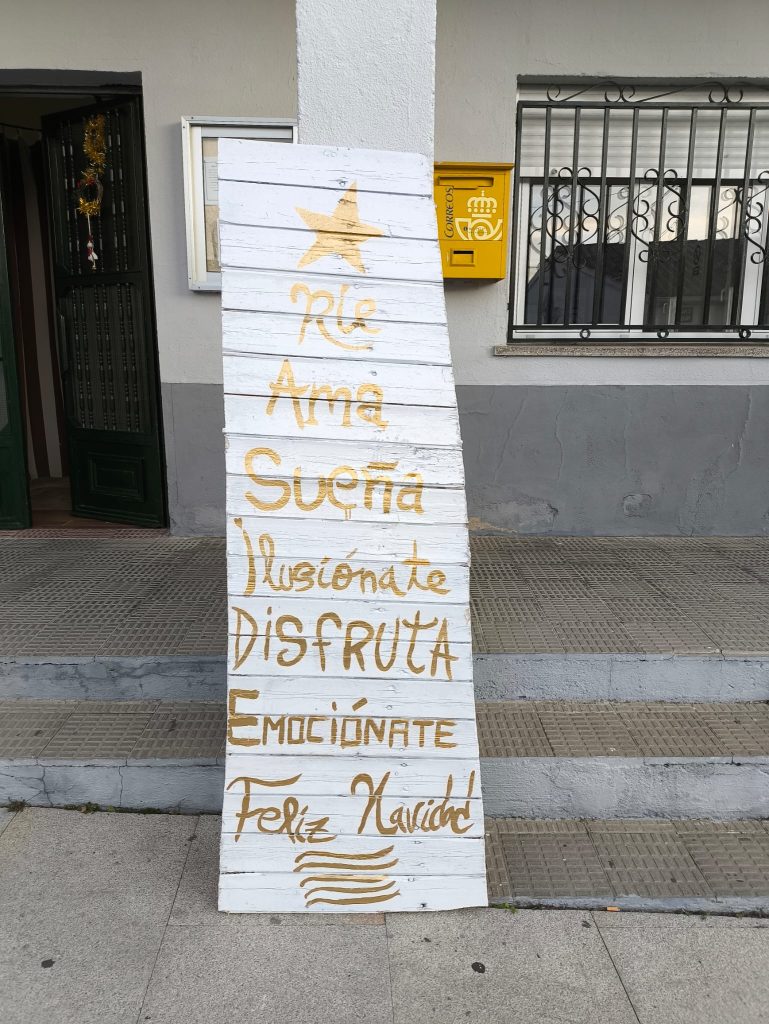 CORREOS
Ríe
Ama
Sueña
Ilusiónate
DiSfRUTA
EMOCIÓNATE
Feliz Navidad